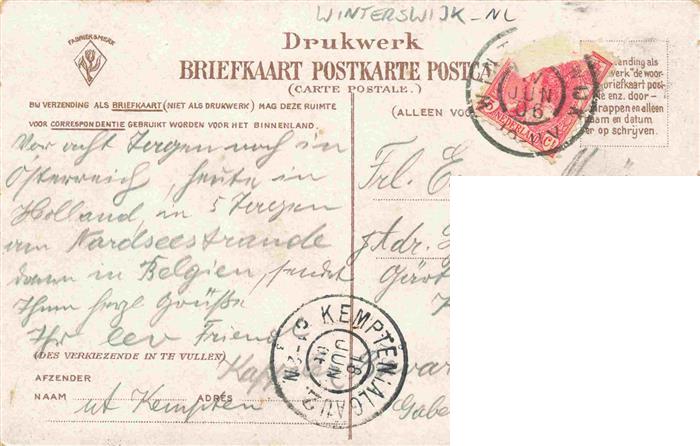 WINTERSWIJK-NL
FABRIEKSMERK
Drukwerk
BRIEFKAART POSTKARTE POSTC
(CARTE POSTALE.)
BIJ VERZENDING ALS BRIEFKAART (NIET ALS DRUKWERK) MAG DEZE RUIMTE
VOOR CORRESPONDENTIE GEBRUIKT WORDEN VOOR HET BINNENLAND.
(ALLEEN VOO
ending als
werk "de woor-
briefkaart post-
te enz. door-
rappen en alleen
aam en datum
er op schrijven.
JUN
06
NEDERLAND
5 CT
Vor acht Tagen noch in
Österreich, heute in
Holland, in 5 Tagen
am Nordseestrande
dann in Belgien, sendet
Ihnen herzl Grüße
Ihr
Frl. E
z Adr.
Gärt
KEMPTEN (ALGÄU)
18
JUN
(DES VERKIEZENDE IN TE VULLEN)
AFZENDER
NAAM
ADRES
Kempten